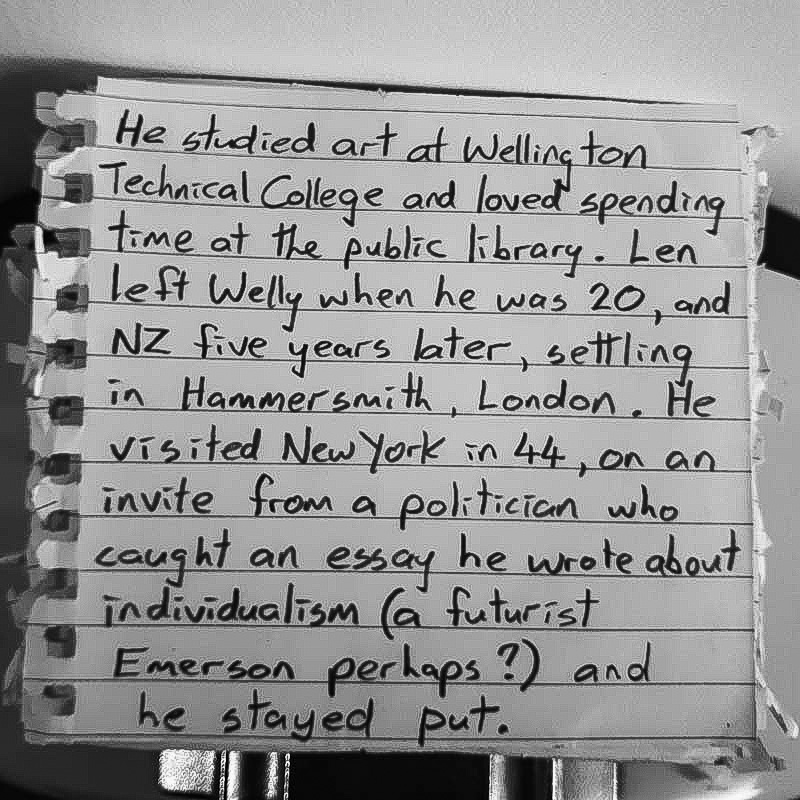 He studied art at Wellington
Technical College and loved spending
time at the public library. Len
left Welly when he was 20, and
NZ five years later, settling
in Hammersmith, London. He
visited New York in 44, on an
invite from a politician who
caught an essay he wrote about
individualism (a futurist
Emerson perhaps?) and
he stayed put.